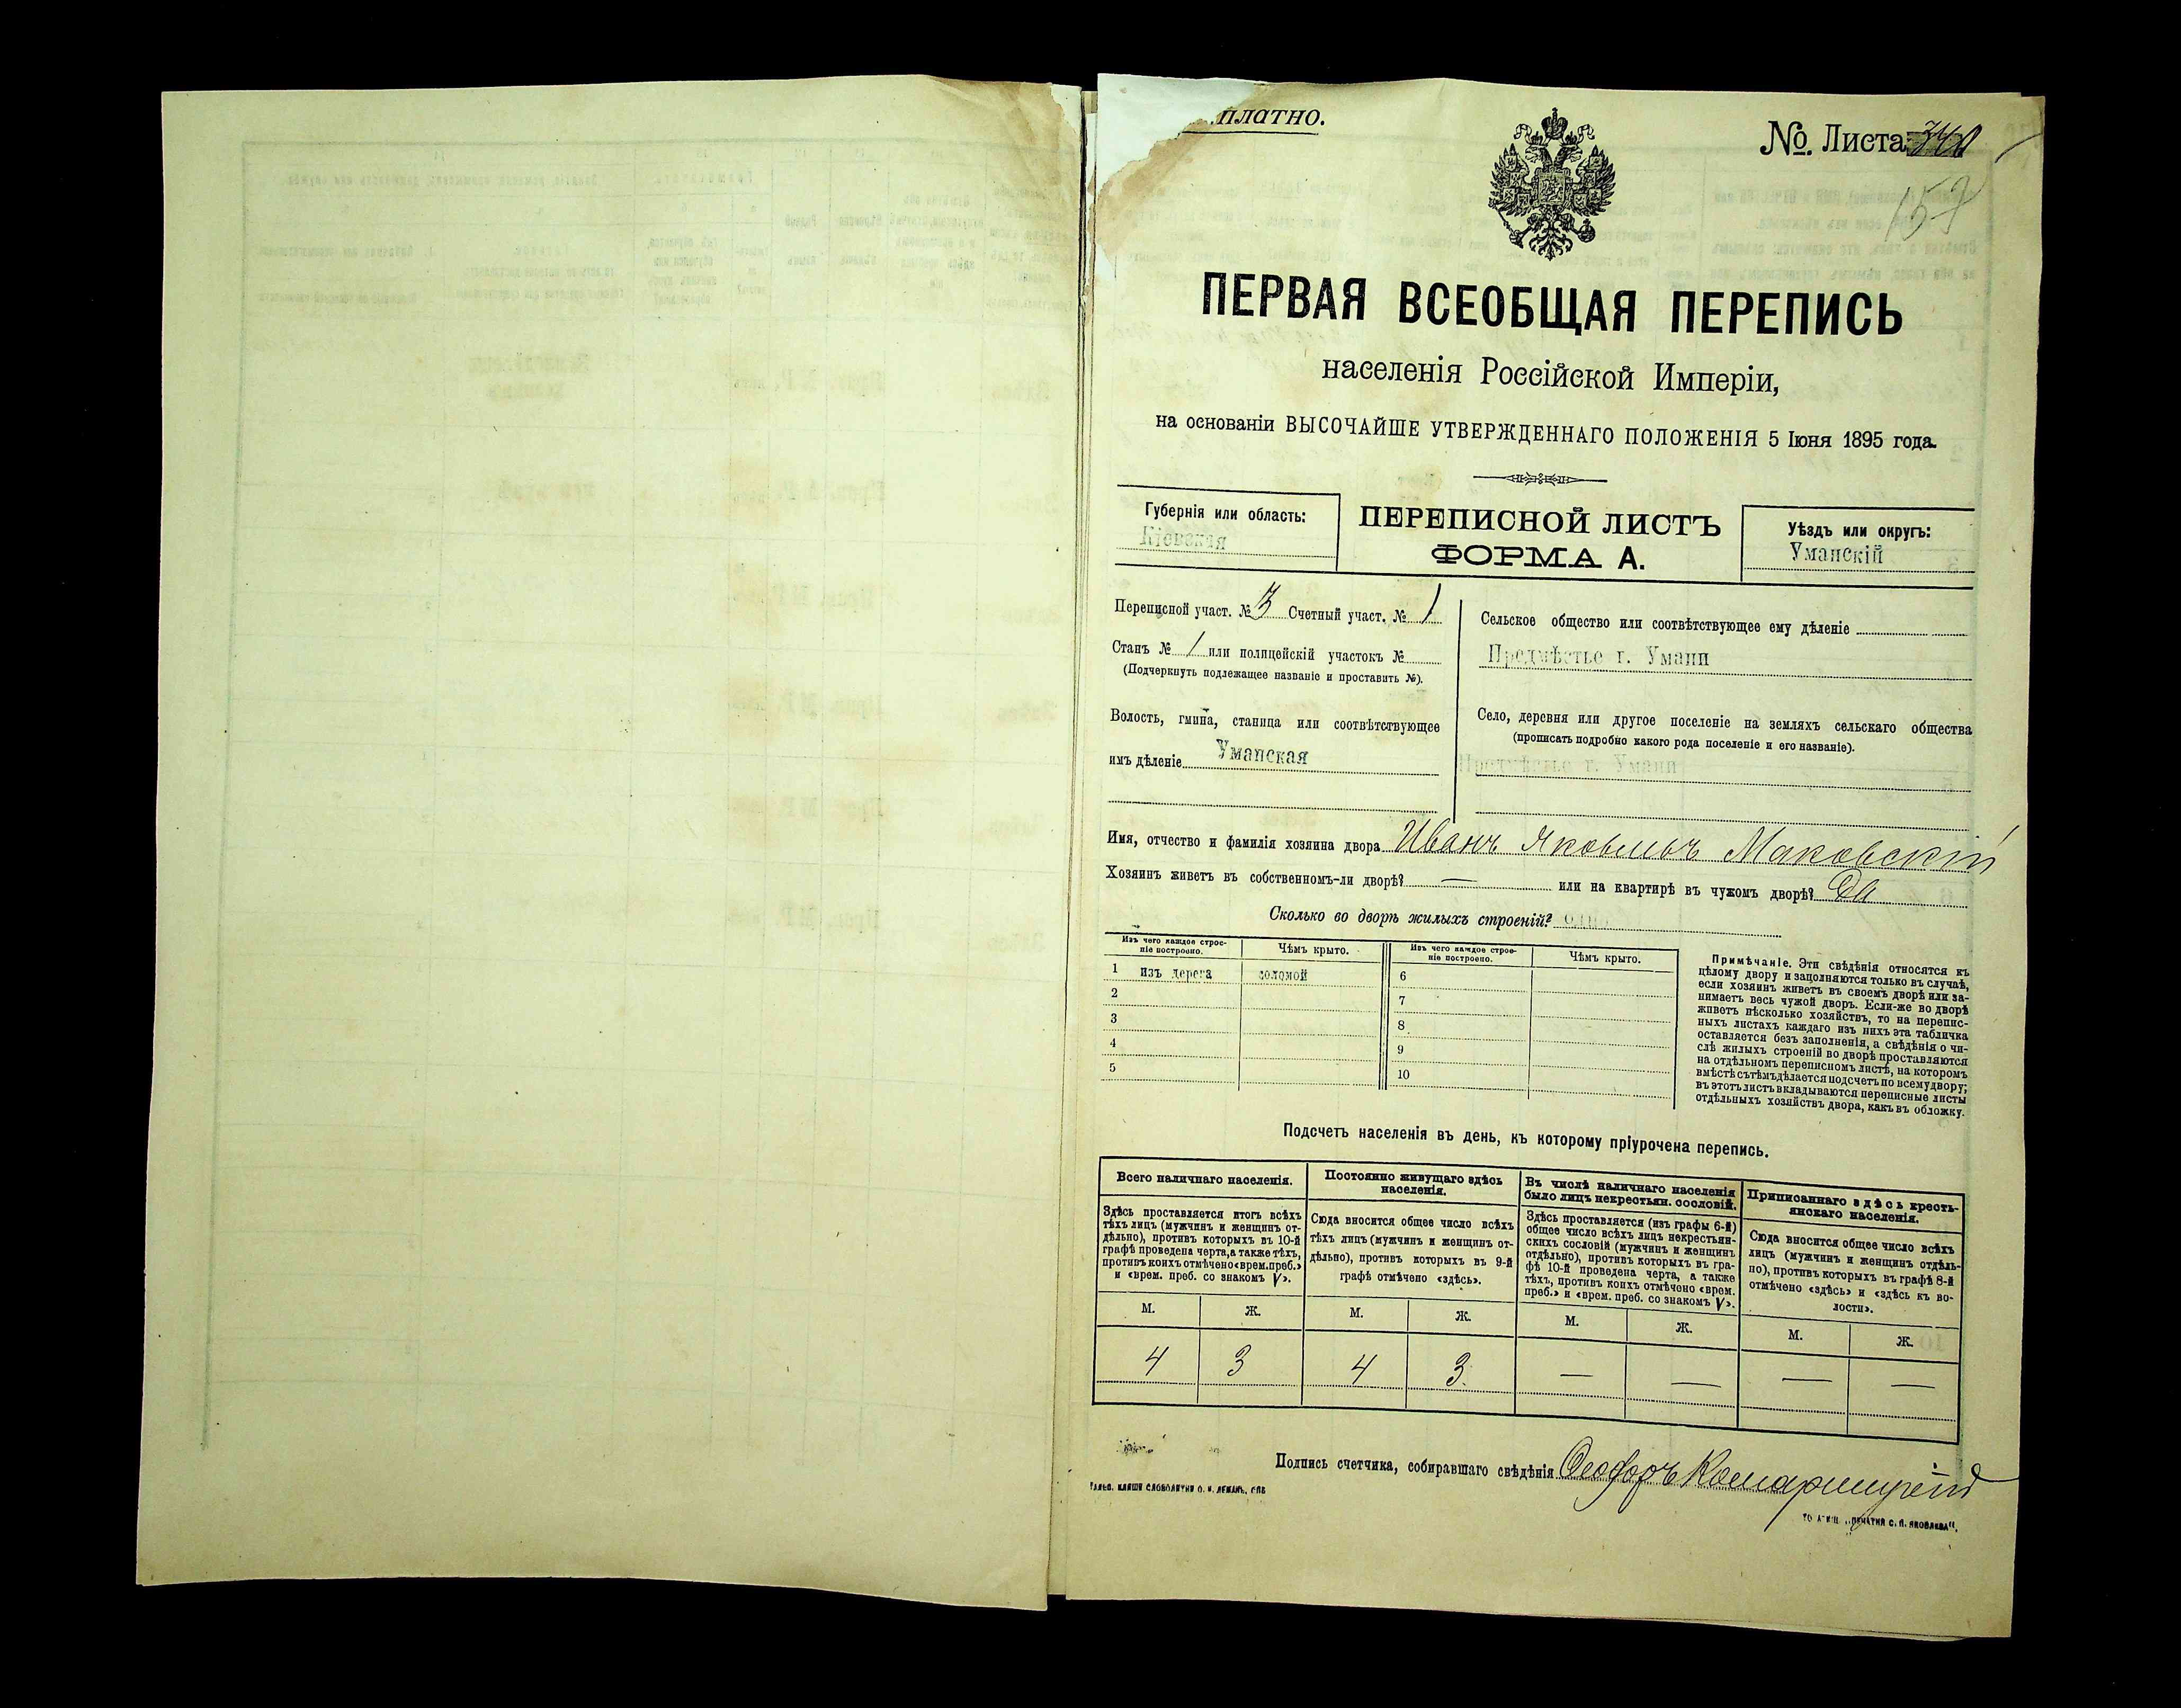 платно.
№. Листа
157
ПЕРВАЯ ВСЕОБЩАЯ ПЕРЕПИСЬ
населенія Россійской Имперіи,
на основаніи ВЫСОЧАЙШЕ УТВЕРЖДЕННАГО ПОЛОЖЕНІЯ 5 Іюня 1895 года.
Губернія или область:
Кіевская
ПЕРЕПИСНОЙ ЛИСТЪ
ФОРМА А.
Уѣздъ или округъ:
Уманскій
Переписной участ. № 3 Счетный участ. № 1
Станъ № 1 или полицейскій участокъ №
(Подчеркнуть подлежащее названіе и проставить №).
Волость, гмина, станица или соотвѣтствующее
имъ дѣленіе Уманская
Сельское общество или соотвѣтствующее ему дѣленіе
Предмѣстье г. Умани
Село, деревня или другое поселеніе на земляхъ сельскаго общества
(прописать подробно какого рода поселеніе и его названіе).
Предмѣстье г. Умани
Имя, отчество и фамилія хозяина двора Иванъ Яковлевъ Маковскій
Хозяинъ живетъ въ собственномъ-ли дворѣ? — или на квартирѣ въ чужомъ дворѣ? Да
Сколько во дворѣ жилыхъ строеній?
Изъ чего каждое строе-
ніе построено.
Чѣмъ крыто.
Изъ чего каждое строе-
ніе построено.
Чѣмъ крыто.
1 изъ дерева соломой 6
2 7
3 8
4 9
5 10
Примѣчаніе. Эти свѣдѣнія относятся къ
цѣлому двору и заполняются только въ случаѣ,
если хозяинъ живетъ въ своемъ дворѣ или за-
нимаетъ весь чужой дворъ. Если-же во дворѣ
живетъ нѣсколько хозяйствъ, то на перепис-
ныхъ листахъ каждаго изъ нихъ эта табличка
оставляется безъ заполненія, а свѣдѣнія о чи-
слѣ жилыхъ строеній во дворѣ проставляются
на отдѣльномъ переписномъ листѣ, на которомъ
вмѣстѣ съ тѣмъ дѣлается подсчетъ по всему двору;
въ этотъ листъ вкладываются переписные листы
отдѣльныхъ хозяйствъ двора, какъ въ обложку.
Подсчетъ населенія въ день, къ которому пріурочена перепись.
Всего наличнаго населенія.
Здѣсь проставляется итогъ всѣхъ
тѣхъ лицъ (мужчинъ и женщинъ от-
дѣльно), противъ которыхъ въ 10-й
графѣ проведена черта, а также тѣхъ,
противъ коихъ отмѣчено «врем. преб.»
и «врем. преб. со знакомъ V».
Постоянно живущаго здѣсь
населенія.
Сюда вносится общее число всѣхъ
тѣхъ лицъ (мужчинъ и женщинъ от-
дѣльно), противъ которыхъ въ 9-й
графѣ отмѣчено «здѣсь».
Въ числѣ наличнаго населенія
было лицъ некрестьян. сословій.
Здѣсь проставляется (изъ графы 6-й)
общее число всѣхъ лицъ некрестьян-
скихъ сословій (мужчинъ и женщинъ
отдѣльно), противъ которыхъ въ гра-
фѣ 10-й проведена черта, а также
тѣхъ, противъ коихъ отмѣчено «врем.
преб.» и «врем. преб. со знакомъ V».
Приписаннаго здѣсь кресть-
янскаго населенія.
Сюда вносится общее число всѣхъ
лицъ (мужчинъ и женщинъ отдѣль-
но), противъ которыхъ въ графѣ 8-й
отмѣчено «здѣсь» и «здѣсь къ во-
лости».
М. Ж. М. Ж. М. Ж. М. Ж.
4 3 4 3 — — — —
Подпись счетчика, собиравшаго свѣдѣнія Феодоръ